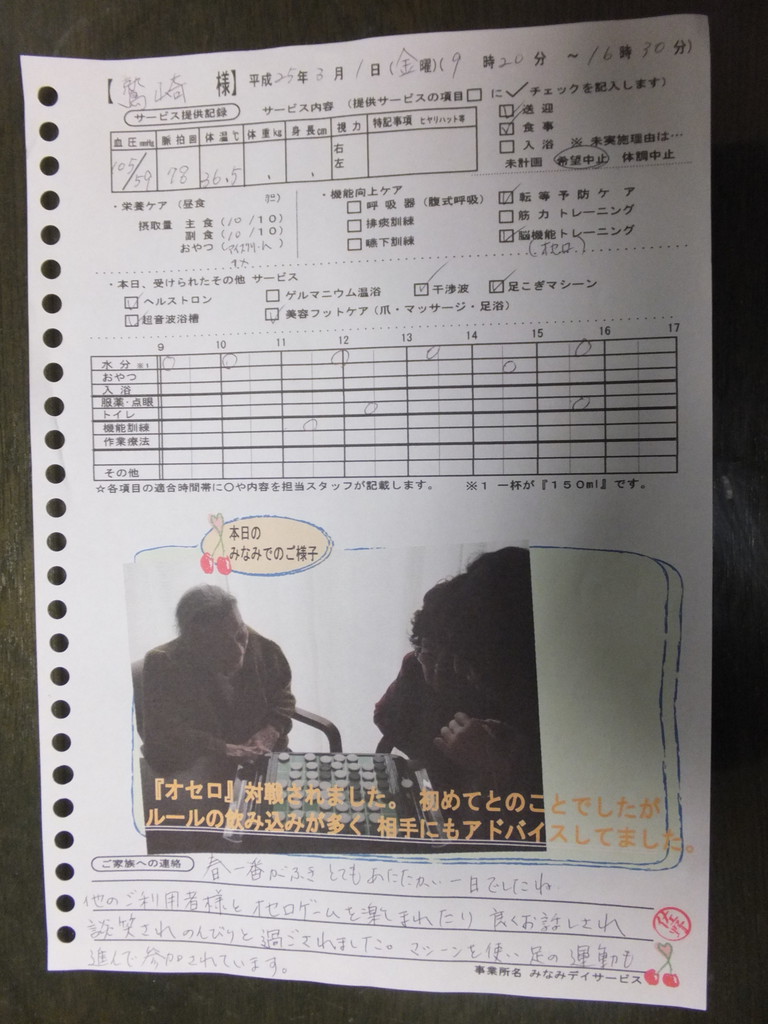 【鷲崎 様】平成25年3月1日(金曜)(9時20分 ～16時30分)
サービス提供記録 サービス内容 (提供サービスの項目□に✓チェックを記入します)
血圧mmHg 脈拍回 体温℃ 体重kg 身長cm 視力 特記事項 ヒヤリハット等
105/59 78 36.5 右 左
送迎
食事
入浴 ※未実施理由は…
未計画 希望中止 体調中止
・栄養ケア (昼食
摂取量 主食(10/10)
副食(10/10)
おやつ(アイスクリーム)
・機能向上ケア
呼吸器(腹式呼吸)
排痰訓練
嚥下訓練
転等予防ケア
筋力トレーニング
脳機能トレーニング
(オセロ)
・本日、受けられたその他サービス
ヘルストロン ゲルマニウム温浴 干渉波 足こぎマシーン
超音波浴槽 美容フットケア(爪・マッサージ・足浴)
9 10 11 12 13 14 15 16 17
水分 ※1
おやつ
入浴
服薬・点眼
トイレ
機能訓練
作業療法
その他
☆各項目の適合時間帯に○や内容を担当スタッフが記載します。 ※1 一杯が『150ml』です。
本日の
みなみでのご様子
『オセロ』対戦されました。 初めてとのことでしたが
ルールの飲み込みが多く 相手にもアドバイスしてました。
ご家族への連絡 春一番がふき とてもあたたかい一日でしたね
他のご利用者様とオセロゲームを楽しまれたり 良くお話しされ
談笑され のんびりと過ごされました。 マシーンを使い 足の運動も
進んで参加されています。
事業所名 みなみデイサービス